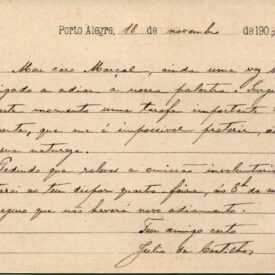 Porto Alegre, 18 de novembro de 190
Meu caro Marçal, ainda uma vez s
igado a adiar a nossa palestra. Surg
este momento uma tarefa importante
que me é impossivel preterir,
sua natureza.
Pedindo que releves a omissão involuntari
ao teu dispor quarta-feira, ás 8 h. da n
seguro que não haverá novo adiamento.
Teu amigo certo
Julio de Castilhos